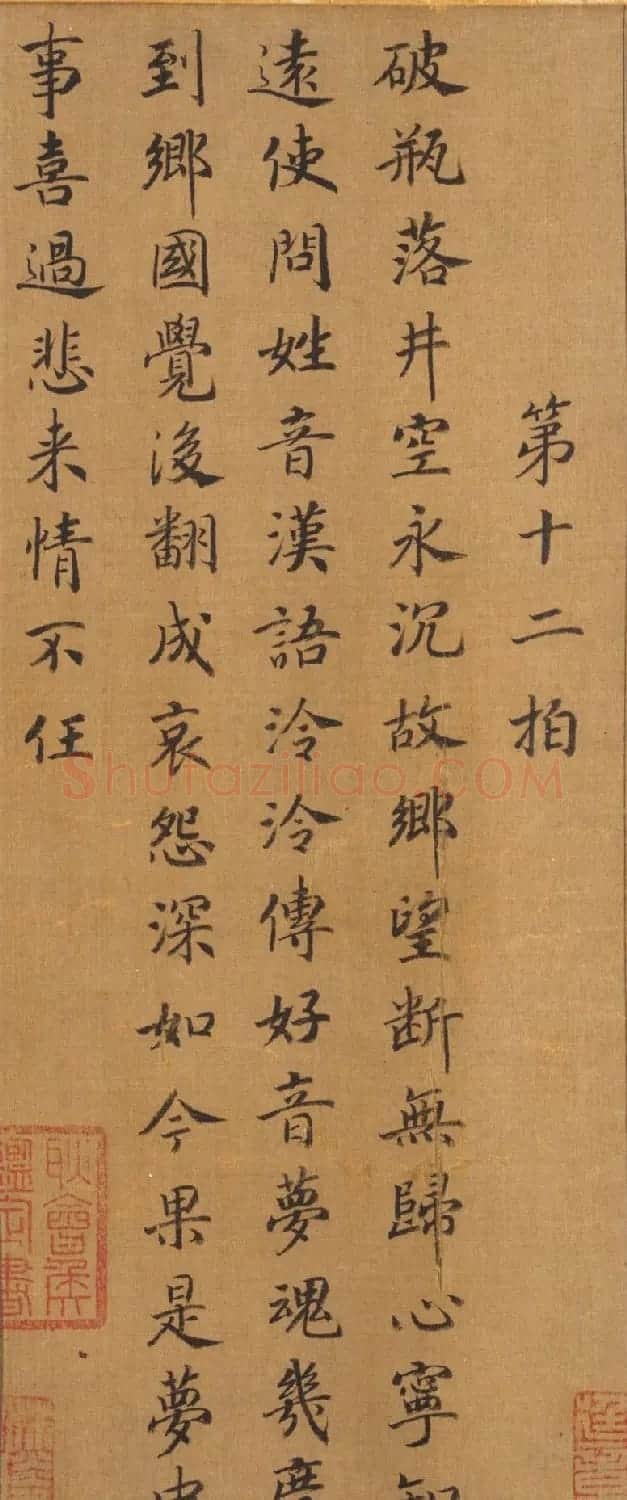 第十二拍
破瓶落井空永沉故鄉望斷無歸心寧知
遠使問姓音漢語泠泠傳好音夢魂幾度
到鄉國覺後翻成哀怨深如今果是夢中
事喜過悲来情不任
Shufaziliao.COM